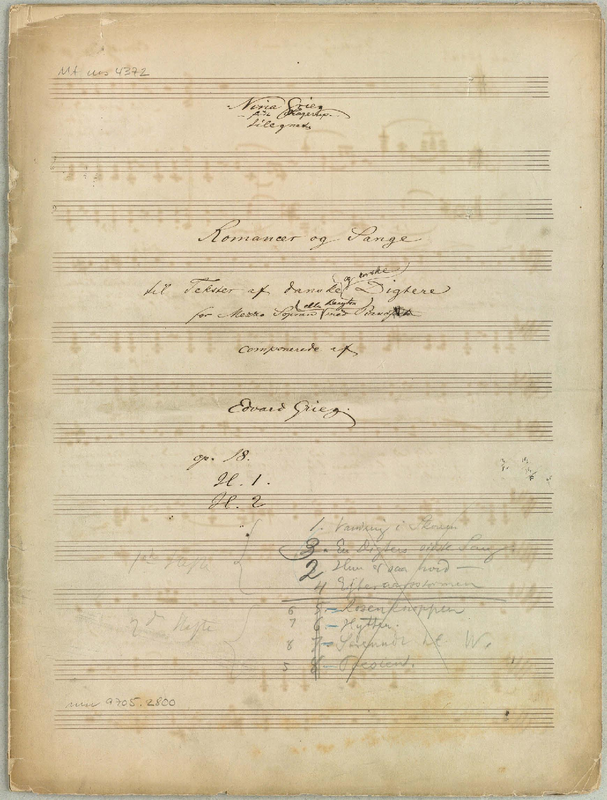 Mus ms 4372
Nina Grieg
født Hagerup
tilegnet
Romancer og Sange
til Tekster af danske og norske Digtere
for Mezzo Sopran eller Baryton med Pianoforte
componerede af
Edvard Grieg.
op. 18.
H. 1.
H. 2
1. Vandring i Skoven
3 - En Digters sidste Sang
1ste Hefte
2 Hun er saa hvid -
4 Efteraarsstormen
6 5 - Rosenknoppen
2det Hefte
7 6 - Hytten.
8 7 - Serenade til W.
5 8 - Poesien.
mu 9705.2800